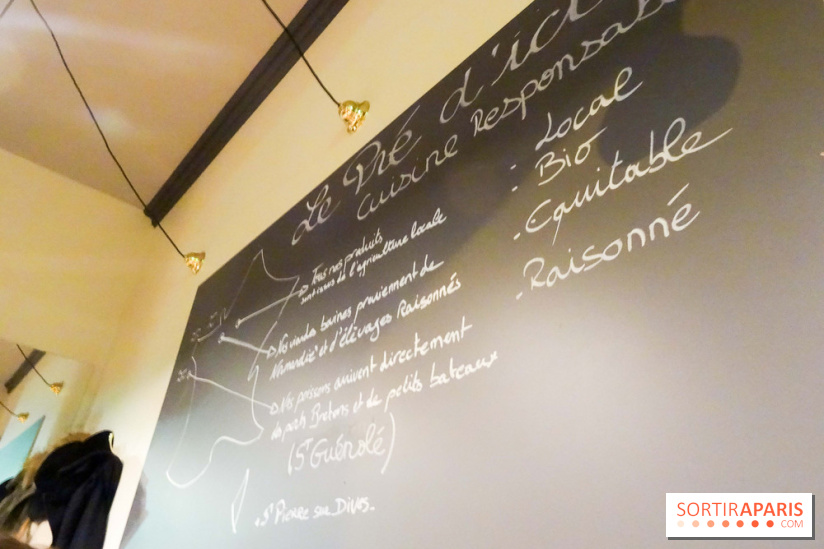 Le Pré d'ici
cuisine Responsable
- Local
- Bio
- Equitable
- Raisonné
Tous nos produits
sont issus de l'agriculture locale
Nos viandes bovines proviennent de
Normandie et d'élevages Raisonnés
Nos poissons arrivent directement
des ports Bretons et de petits bateaux
(St Guénolé)
. St Pierre sur Dives.
SORTIRAPARIS
.COM